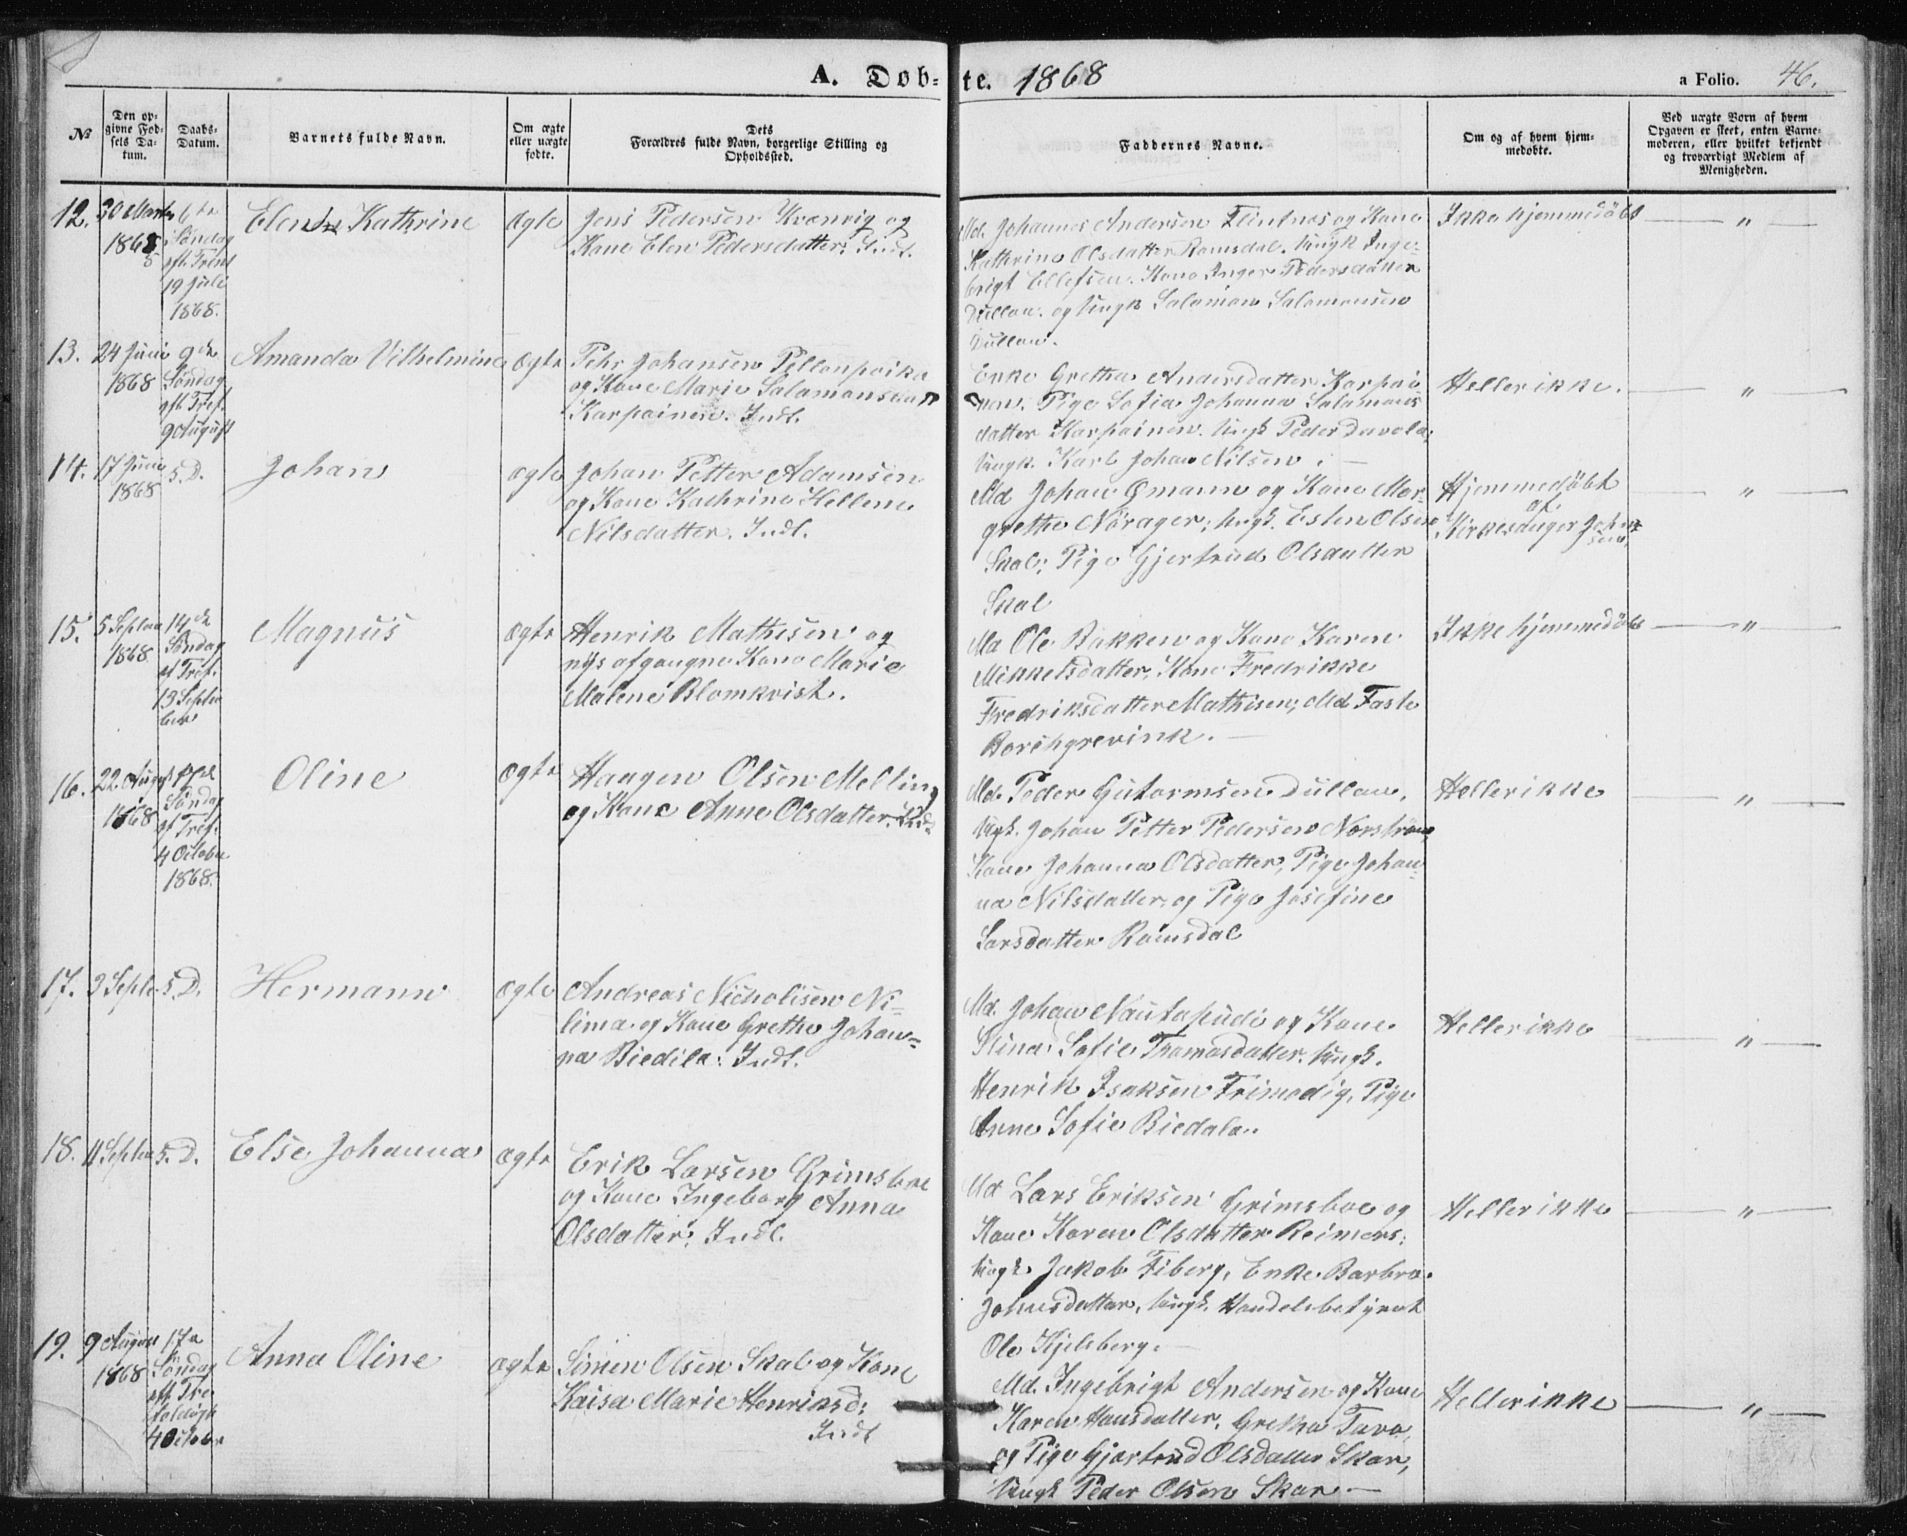 A. Dob-te. 1868
a Folio. 46.
No
Den op-
givne Fød-
sels Da-
tum.
Daabs-
Datum.
Barnets fulde Navn.
Om ægte
eller uægte
fødte.
Dets
Forældres fulde Navn, borgerlige Stilling og
Opholdssted.
Faddernes Navne.
Om og af hvem hjem-
medøbte.
Ved uægte Børn af hvem
Opgaven er skeet, enten Barne-
moderen, eller hvilket bekjendt
og troværdigt Medlem af
Menigheden.
12.
30 Marts
1868
6te
Søndag
eft Trent
19 Juli
1868.
Elen Kathrine
Ægte
Jens Pedersen Kvænvig og
Kone Elen Pedersdatter. Indl.
Md. Johannes Andersen Flintnes og Kone
Kathrine Olsdatter Ramsdal. Ungk Inge-
brigt Ellefsen. Kone Inger Pedersdatter
Dullau. og Ungk Salamon Salamonsen
Dullau.
Ikke hjemmedøbt
— " —
13.
24 Juni
1868
9de
Søndag
eft Tref.
9 August
Amanda Vilhelmine
ægte
Pehr Johansen Pellonpoika
og Kone Marie Salamonsdatr
Karpainen. Indl.
Enke Grethe Andersdatter Karpai-
nen. Pige Sofia Johanna Salamons
datter Karpainen. Ungk Peder Davola;
Ungk. Karl Johan Nilsen. —
Heller ikke.
— " —
14.
17 Juni
1868
s. D.
Johan
ægte
Johan Petter Adamsen
og Kone Kathrine Hellene
Nilsdatter. Indl.
Md Johan Qmann og Kone Mar-
grethe Nørager; Ungk. Esten Olsen
Skal; Pige Gjertrud Olsdatter
Skal
Hjemmedøbt
af
Kirkesanger Johan-
sen.
— " —
15.
5 Septem
1868
14de
Søndag
ef Tref.
13 Septem
ber
Magnus
ægte
Henrik Mathisen og
nys afgangne Kone Marie
Malene Blomkvist.
Md Ole Bakken og Kone Karen
Mikkelsdatter, Kone Fredrikke
Fredriksdatter Mathisen; Md Faste
Borchgrevink. —
Ikke hjemmedøbt
— " —
16.
22 August
1868
17de
Søndag
ef Tref.
4 October
1868.
Oline
ægte
Haagen Olsen Melling
og Kone Anne Olsdatter. Indl.
Md. Peder Gutormsen Dullau,
Ungk. Johan Petter Pedersen Norstrøm,
Kone Johanna Olsdatter, Pige Johan-
na Nilsdatter, og Pige Josefine
Larsdatter Ramsdal
Heller ikke
— " —
17.
3 Septe
s. D.
Hermann
ægte
Andreas Nicholisen Ni-
lima og Kone Grethe Johan-
na Biedila: Indl.
Md. Johan Nautapudi og Kone
Stina Sofie Thomasdatter. Ungk.
Henrik Isaksen Frimodig, Pige
Anne Sofie Biedala.
Heller ikke
— " —
18.
4 Septem
s. D.
Else Johanna
ægte
Erik Larsen Grimsboe
og Kone Ingeborg Anna
Olsdatter; Indl.
Md Lars Eriksen Grimsboe og
Kone Karen Olsdatter Reimers;
Ungk. Jakob Fiberg, Enke Barbro
Johnsdatter, Ungk. Handelsbetjent
Ole Kjelsberg. —
Heller ikke
— " —
19.
9 August
1868
17de
Søndag
eft Tre
foldigh
4 October
Anna Oline
ægte
Simen Olsen Skal og Kone
Kaisa Marie Henriksd:
Indl
Md. Ingebrigt Andersen og Kone
Karen Hansdatter, Gretha Tava,
og Pige Gjertrud Olsdatter Skar,
Ungk Peder Olsen Skar. —
Heller ikke
— " —